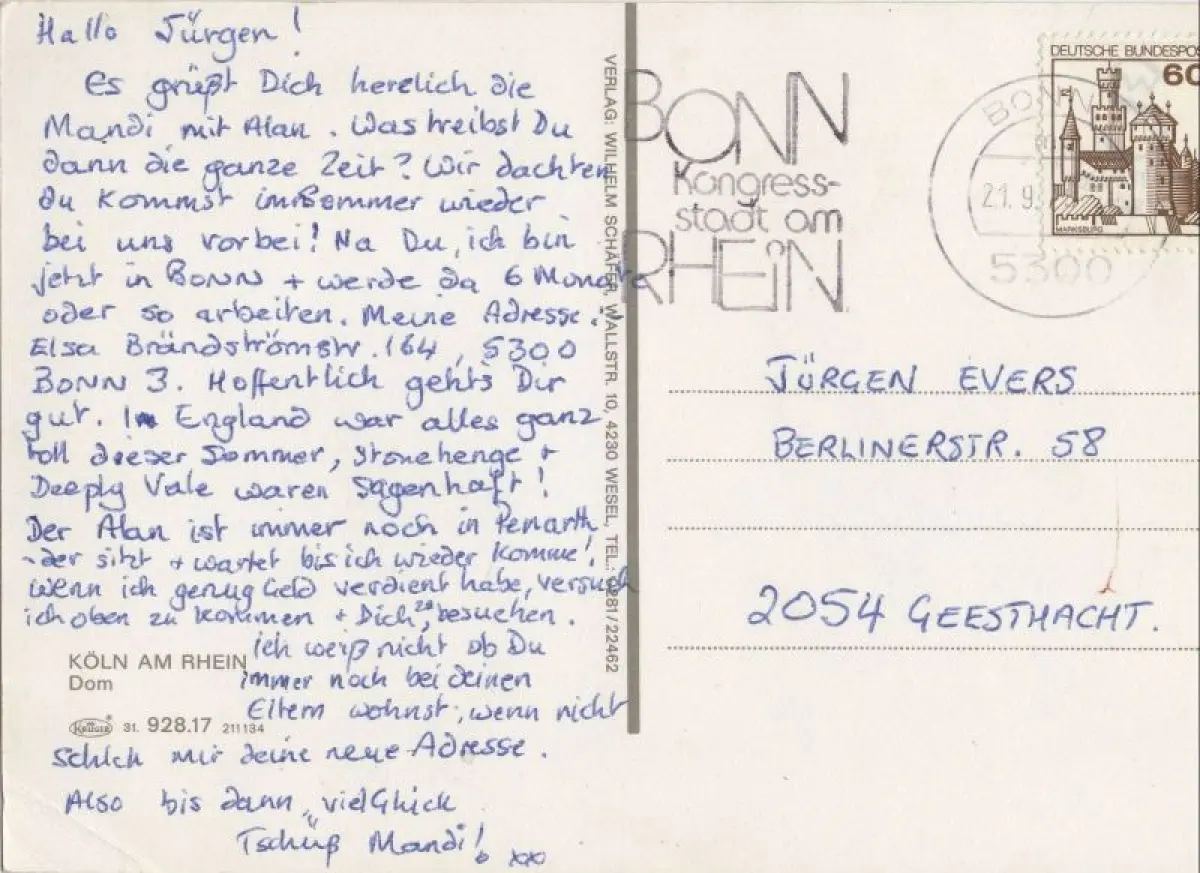 Hallo Jürgen!
Es grüßt Dich herzlich die
Mandi mit Alan. Was treibst Du
dann die ganze Zeit? Wir dachten
du kommst im Sommer wieder
bei uns vorbei! Na Du, ich bin
jetzt in BONN + werde da 6 Monate
oder so arbeiten. Meine Adresse:
Elsa Brändströmstr. 164, 5300
BONN 3. Hoffentlich gehts Dir
gut. In England war alles ganz
toll dieser Sommer, Stonehenge +
Deeply Vale waren sagenhaft!
Der Alan ist immer noch in Penarth
-der sitzt + wartet bis ich wieder komme!
Wenn ich genug Geld verdient habe, versuch
ich oben zu kommen + Dich zu besuchen.
Ich weiß nicht ob Du
immer noch bei deinen
Eltern wohnst; wenn nicht
schick mir deine neue Adresse.
Also bis dann, viel Glück
Tschüß Mandi! xx
KÖLN AM RHEIN
Dom
KRÜGER 31. 928.17 211134
VERLAG: WILHELM SCHÄFER, WALLSTR. 10, 4230 WESEL, TEL.: 0281/22462
BONN
Kongress-
stadt am
RHEIN
BONN
21. 9
5300
DEUTSCHE BUNDESPOS
60
MARKSBURG
JÜRGEN EVERS
BERLINERSTR. 58
2054 GEESTHACHT.